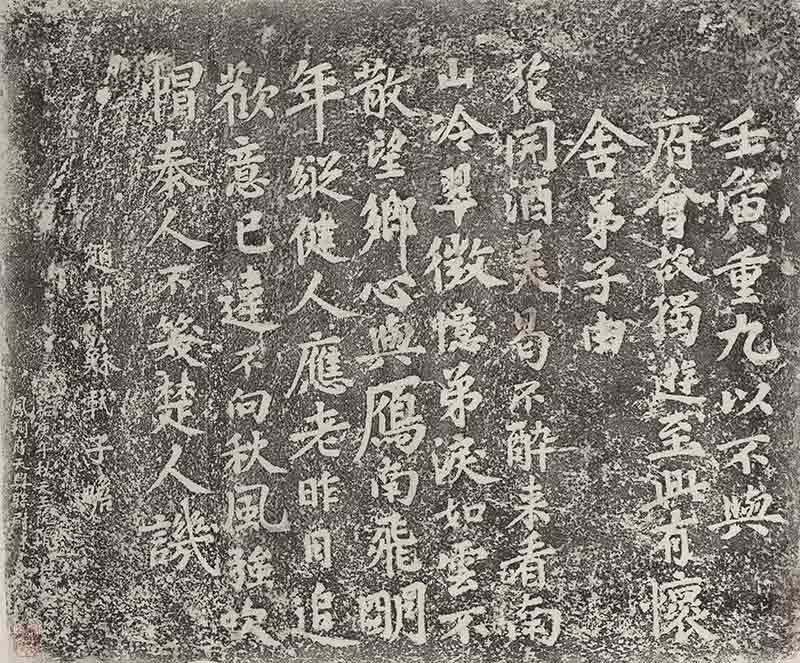 壬寅重九以不與
府會故獨遊至此有懷
舍弟子由
花開酒美曷不醉来看南
山冷翠微憶弟淚如雲不
散望鄉心與鴈南飛明
年縱健人應老昨日追
歡意已違不向秋風強吹
帽秦人不笑楚人譏
趙郡蘇軾子瞻